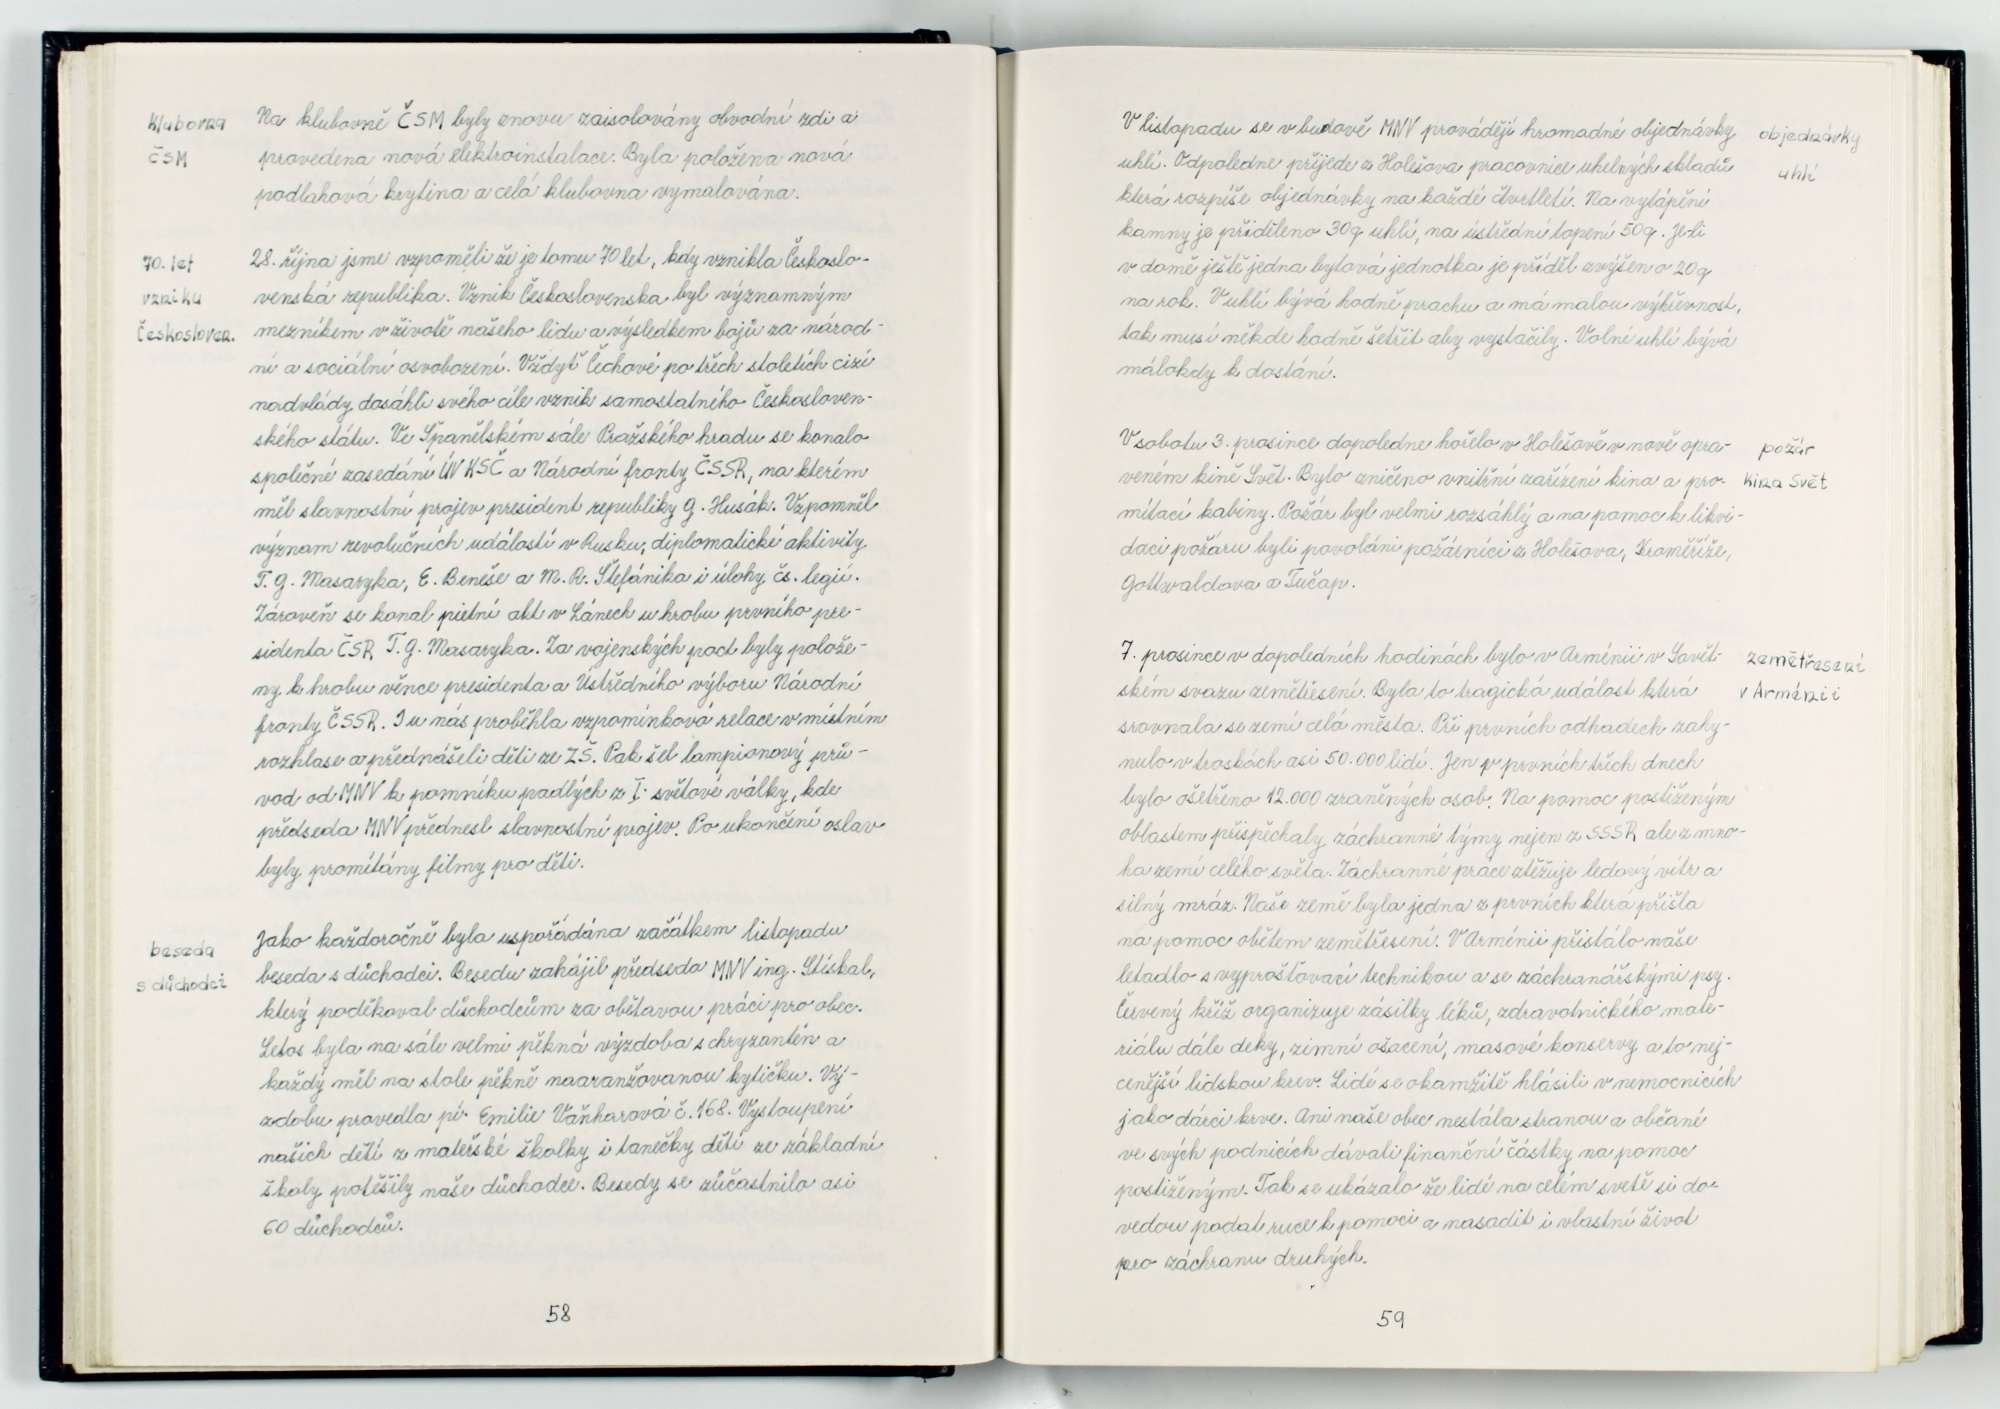 klubovna
ČSM
Na klubovně ČSM byly znovu zaisolovány obvodní zdi a
provedena nová elektroinstalace. Byla položena nová
podlahová krytina a celá klubovna vymalována.
70. let
vzniku
Českosloven.
28. října jsme vzpoměli že je tomu 70 let, kdy vznikla Českoslo-
venská republika. Vznik Československa byl významným
mezníkem v životě našeho lidu a výsledkem bojů za národ-
ní a sociální osvobození. Vždyť Čechové po třech staletích cizí
nadvlády dosáhli svého cíle vznik samostatného Českosloven-
ského státu. Ve Španělském sále Pražského hradu se konalo
společné zasedání ÚV KSČ a Národní fronty ČSSR, na kterém
měl slavnostní projev president republiky G. Husák. Vzpomněl
význam revolučních událostí v Rusku, diplomatické aktivity
T. G. Masaryka, E. Beneše a M. R. Štefánika i úlohy čs. legií.
Zároveň se konal pietní akt v Lánech u hrobu prvního pre-
sidenta ČSR T. G. Masaryka. Za vojenských poct byly polože-
ny k hrobu věnce presidenta a Ústředního výboru Národní
fronty ČSSR. I u nás proběhla vzpomínková relace v místním
rozhlase a přednášeli děti ze ZŠ. Pak šel lampionový prů-
vod od MNV k pomníku padlých z I. světové války, kde
předseda MNV přednesl slavnostní projev. Po ukončení oslav
byly promítány filmy pro děti.
beseda
s důchodci
Jako každoročně byla uspořádána začátkem listopadu
beseda s důchodci. Besedu zahájil předseda MNV ing. Stískal,
který poděkoval důchodcům za obětavou práci pro obec.
Letos byla na sále velmi pěkná výzdoba s chryzantén a
každý měl na stole pěkně naaranžovanou kytičku. Vý-
zdobu provedla pí. Emilie Vaňharová č. 168. Vystoupení
našich dětí z mateřské školky i tanečky dětí ze základní
školy potěšily naše důchodce. Besedy se zůčastnilo asi
60 důchodců.
58
V listopadu se v budově MNV provádějí hromadné objednávky
uhlí. Odpoledne přijede z Holešova pracovnice uhelných skladů
která rozpíše objednávky na každé čtvrtletí. Na vytápění
kamny je přiděleno 30q uhlí, na ústřední topení 50q. Je-li
v domě ještě jedna bytová jednotka je příděl zvýšen o 20q
na rok. V uhlí bývá hodně prachu a má malou výhřevnost,
tak musí někde hodně šetřit aby vystačily. Volní uhlí bývá
málokdy k dostání.
objednávky
uhlí
V sobotu 3. prosince dopoledne hořelo v Holešově v nově opra-
veném kině Svět. Bylo zničeno vnitřní zařízení kina a pro-
mítací kabiny. Požár byl velmi rozsáhlý a na pomoc k likvi-
daci požáru byli povoláni požárníci z Holešova, Kroměříže,
Gottwaldova a Tučap.
požár
kina Svět
7. prosince v dopoledních hodinách bylo v Arménii v Sovět-
ském svazu zemětřesení. Byla to tragická událost která
srovnala se zemí celá města. Při prvních odhadech zahy-
nulo v troskách asi 50.000 lidí. Jen v prvních třech dnech
bylo ošetřeno 12.000 zraněných osob. Na pomoc postiženým
oblastem přispěchaly záchranné týmy nejen z SSSR ale z mno-
ha zemí celého světa. Záchranné práce ztěžuje ledový vítr a
silný mráz. Naše země byla jedna z prvních která přišla
na pomoc obětem zemětřesení. V Arménii přistálo naše
letadlo s vyprošťovací technikou a se záchranářskými psy.
Červený kříž organizuje zásilky léků, zdravotnického mate-
riálu dále deky, zimní ošacení, masové konservy a to nej-
cenější lidskou krev. Lidé se okamžitě hlásili v nemocnicích
jako dárci krve. Ani naše obec nestála stranou a občané
ve svých podnicích dávali finanční částky na pomoc
postiženým. Tak se ukázalo že lidé na celém světě si do-
vedou podat ruce k pomoci a nasadit i vlastní život
pro záchranu druhých.
zemětřesení
v Arménii
59